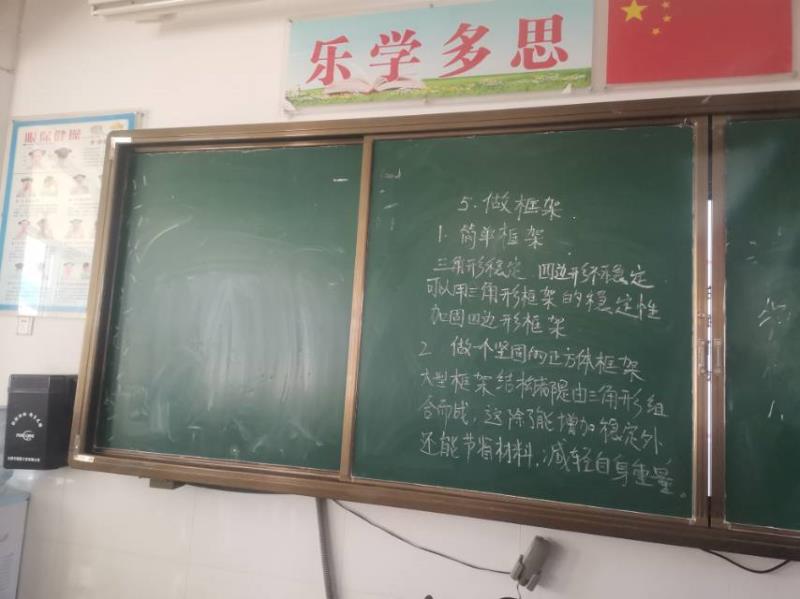 乐学多思
眼保健操
5.做框架
1.简单框架
三角形稳定 四边形不稳定
可以用三角形框架的稳定性
加固四边形框架
2 做一个坚固的正方体框架
大型框架结构都是由三角形组
合而成，这除了能增加稳定外
还能节省材料，减轻自身重量。
1.